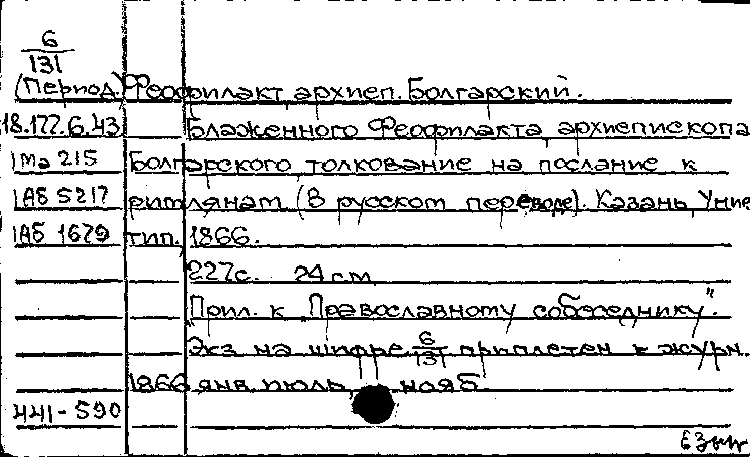 6
131
(Период.) Феофилакт, архиеп. Болгарский.
18.177.6.43 Блаженного Феофилакта, архиепископа
1Ма 215 Болгарского, толкование на послание к
1Аб 5217 римлянам (В русском переводе). Казань, Унив
1Аб 1679 тип., 1866.
227с. 24 см.
"Прил. к Православному собеседнику".
Экз на шифре 6/131 приплетен к журн.
1866 янв. июль, нояб
441-590